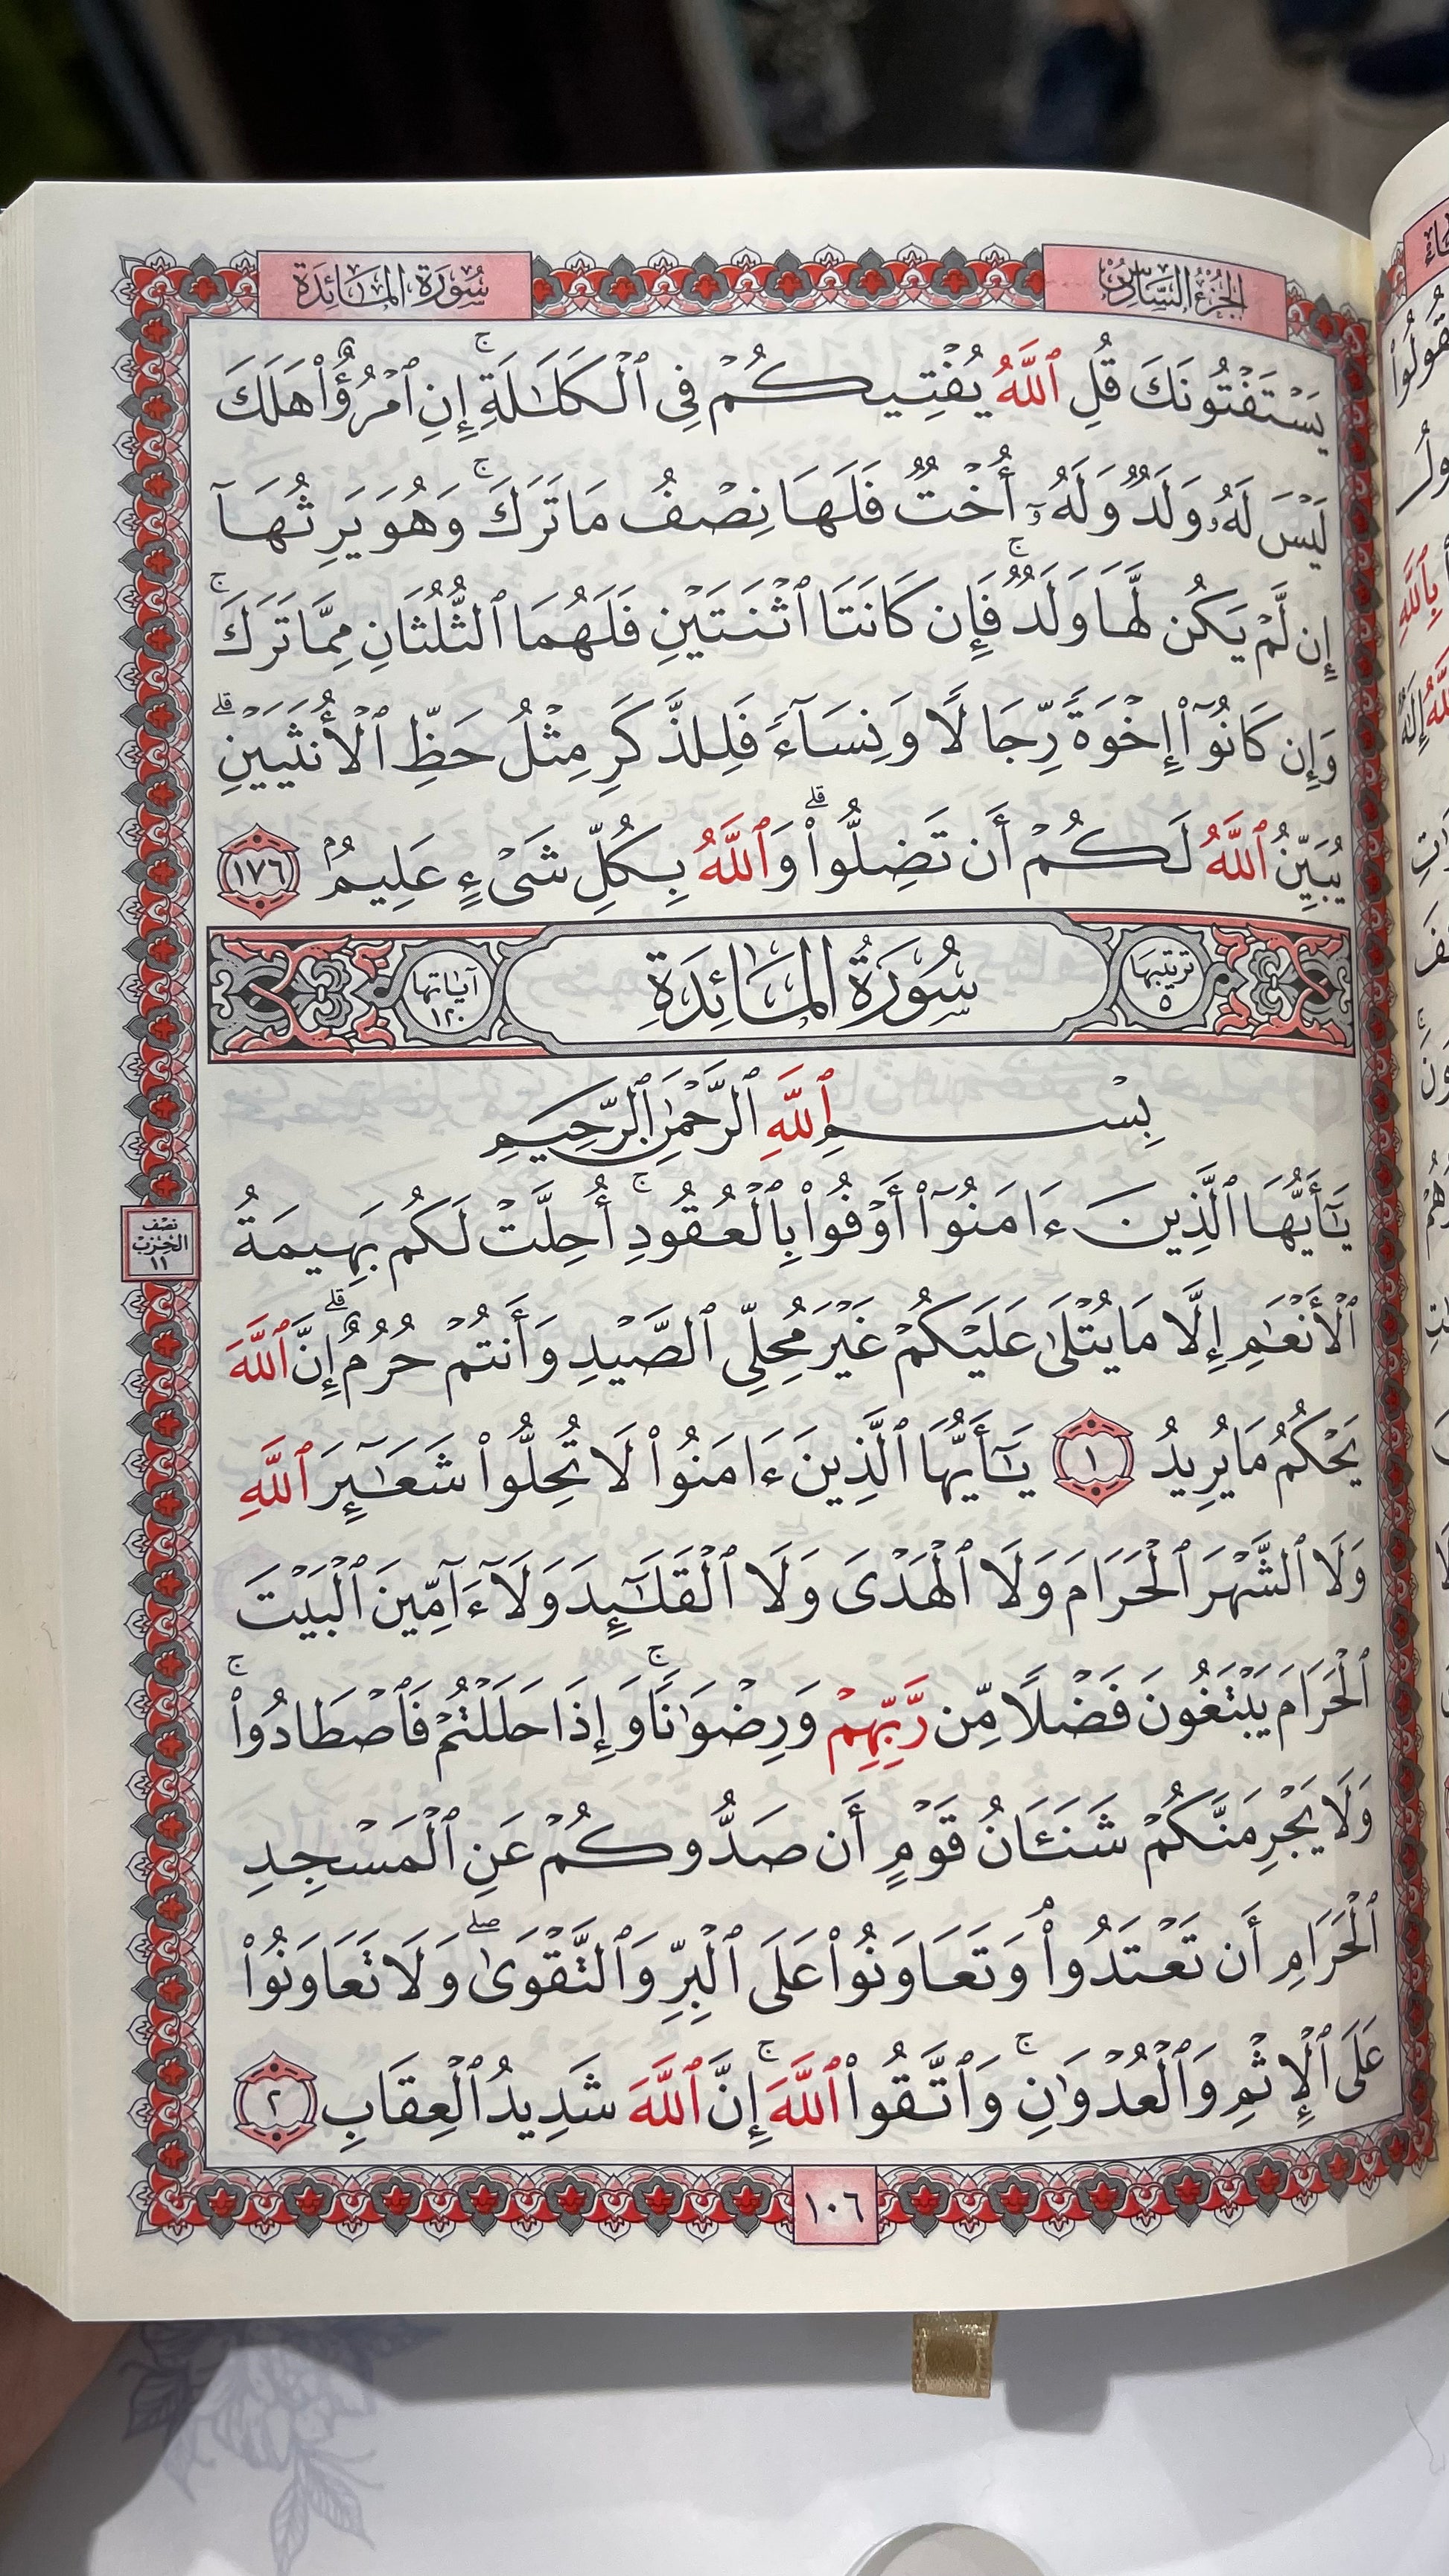 الجزء السادس
سورة المائدة
يَسْتَفْتُونَكَ قُلِ ٱللَّهُ يُفْتِيكُمْ فِى ٱلْكَلَـٰلَةِ ۚ إِنِ ٱمْرُؤٌا۟ هَلَكَ
لَيْسَ لَهُۥ وَلَدٌ وَلَهُۥٓ أُخْتٌ فَلَهَا نِصْفُ مَا تَرَكَ ۚ وَهُوَ يَرِثُهَآ
إِن لَّمْ يَكُن لَّهَا وَلَدٌ ۚ فَإِن كَانَتَا ٱثْنَتَيْنِ فَلَهُمَا ٱلثُّلُثَانِ مِمَّا تَرَكَ ۚ
وَإِن كَانُوٓا۟ إِخْوَةً رِّجَالًا وَنِسَآءً فَلِلذَّكَرِ مِثْلُ حَظِّ ٱلْأُنثَيَيْنِ ۗ
يُبَيِّنُ ٱللَّهُ لَكُمْ أَن تَضِلُّوا۟ ۗ وَٱللَّهُ بِكُلِّ شَىْءٍ عَلِيمٌۢ ١٧٦
ترتيبها ٥
سُورَةُ المَائِدَةِ
آياتها ١٢٠
بِسْمِ ٱللَّهِ ٱلرَّحْمَـٰنِ ٱلرَّحِيمِ
يَـٰٓأَيُّهَا ٱلَّذِينَ ءَامَنُوٓا۟ أَوْفُوا۟ بِٱلْعُقُودِ ۚ أُحِلَّتْ لَكُم بَهِيمَةُ
نصف الحزب ١١
ٱلْأَنْعَـٰمِ إِلَّا مَا يُتْلَىٰ عَلَيْكُمْ غَيْرَ مُحِلِّى ٱلصَّيْدِ وَأَنتُمْ حُرُمٌ ۗ إِنَّ ٱللَّهَ
يَحْكُمُ مَا يُرِيدُ ١ يَـٰٓأَيُّهَا ٱلَّذِينَ ءَامَنُوا۟ لَا تُحِلُّوا۟ شَعَـٰٓئِرَ ٱللَّهِ
وَلَا ٱلشَّهْرَ ٱلْحَرَامَ وَلَا ٱلْهَدْىَ وَلَا ٱلْقَلَـٰٓئِدَ وَلَآ ءَآمِّينَ ٱلْبَيْتَ
ٱلْحَرَامَ يَبْتَغُونَ فَضْلًا مِّن رَّبِّهِمْ وَرِضْوَٰنًا ۚ وَإِذَا حَلَلْتُمْ فَٱصْطَادُوا۟ ۚ
وَلَا يَجْرِمَنَّكُمْ شَنَـَٔانُ قَوْمٍ أَن صَدُّوكُمْ عَنِ ٱلْمَسْجِدِ
ٱلْحَرَامِ أَن تَعْتَدُوا۟ ۘ وَتَعَاوَنُوا۟ عَلَى ٱلْبِرِّ وَٱلتَّقْوَىٰ ۖ وَلَا تَعَاوَنُوا۟
عَلَى ٱلْإِثْمِ وَٱلْعُدْوَٰنِ ۚ وَٱتَّقُوا۟ ٱللَّهَ ۚ إِنَّ ٱللَّهَ شَدِيدُ ٱلْعِقَابِ ٢
١٠٦